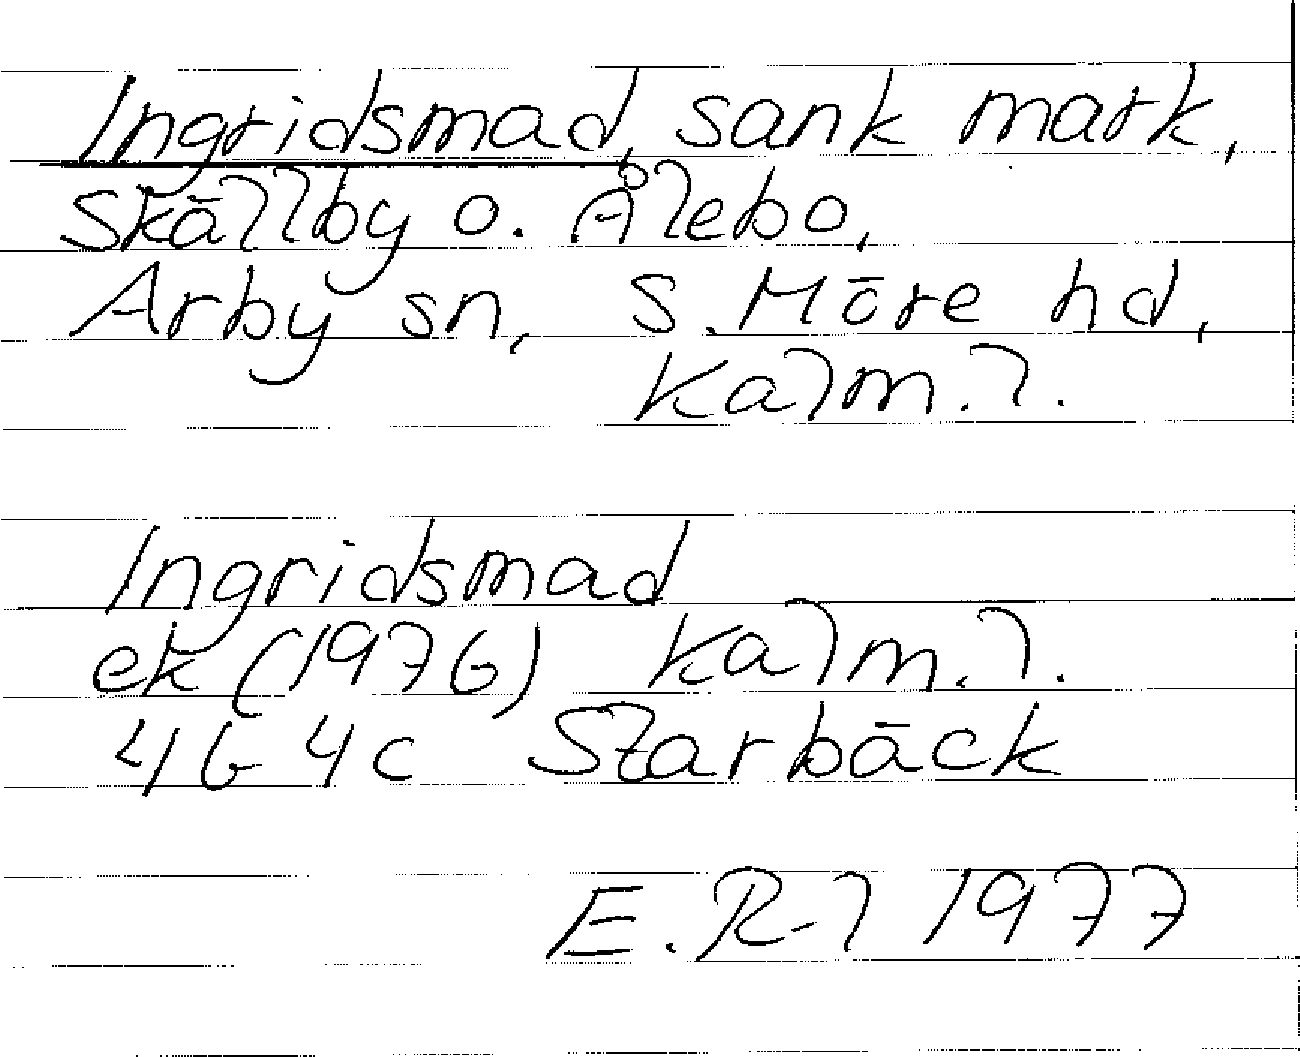 Ingridsmad, sank mark,
Skällby o. Ålebo,
Arby sn, S. Möre hd,
Kalm. l.
Ingridsmad
ek (1976) Kalm. l.
4G 4c Starbäck
E. R-l 1977